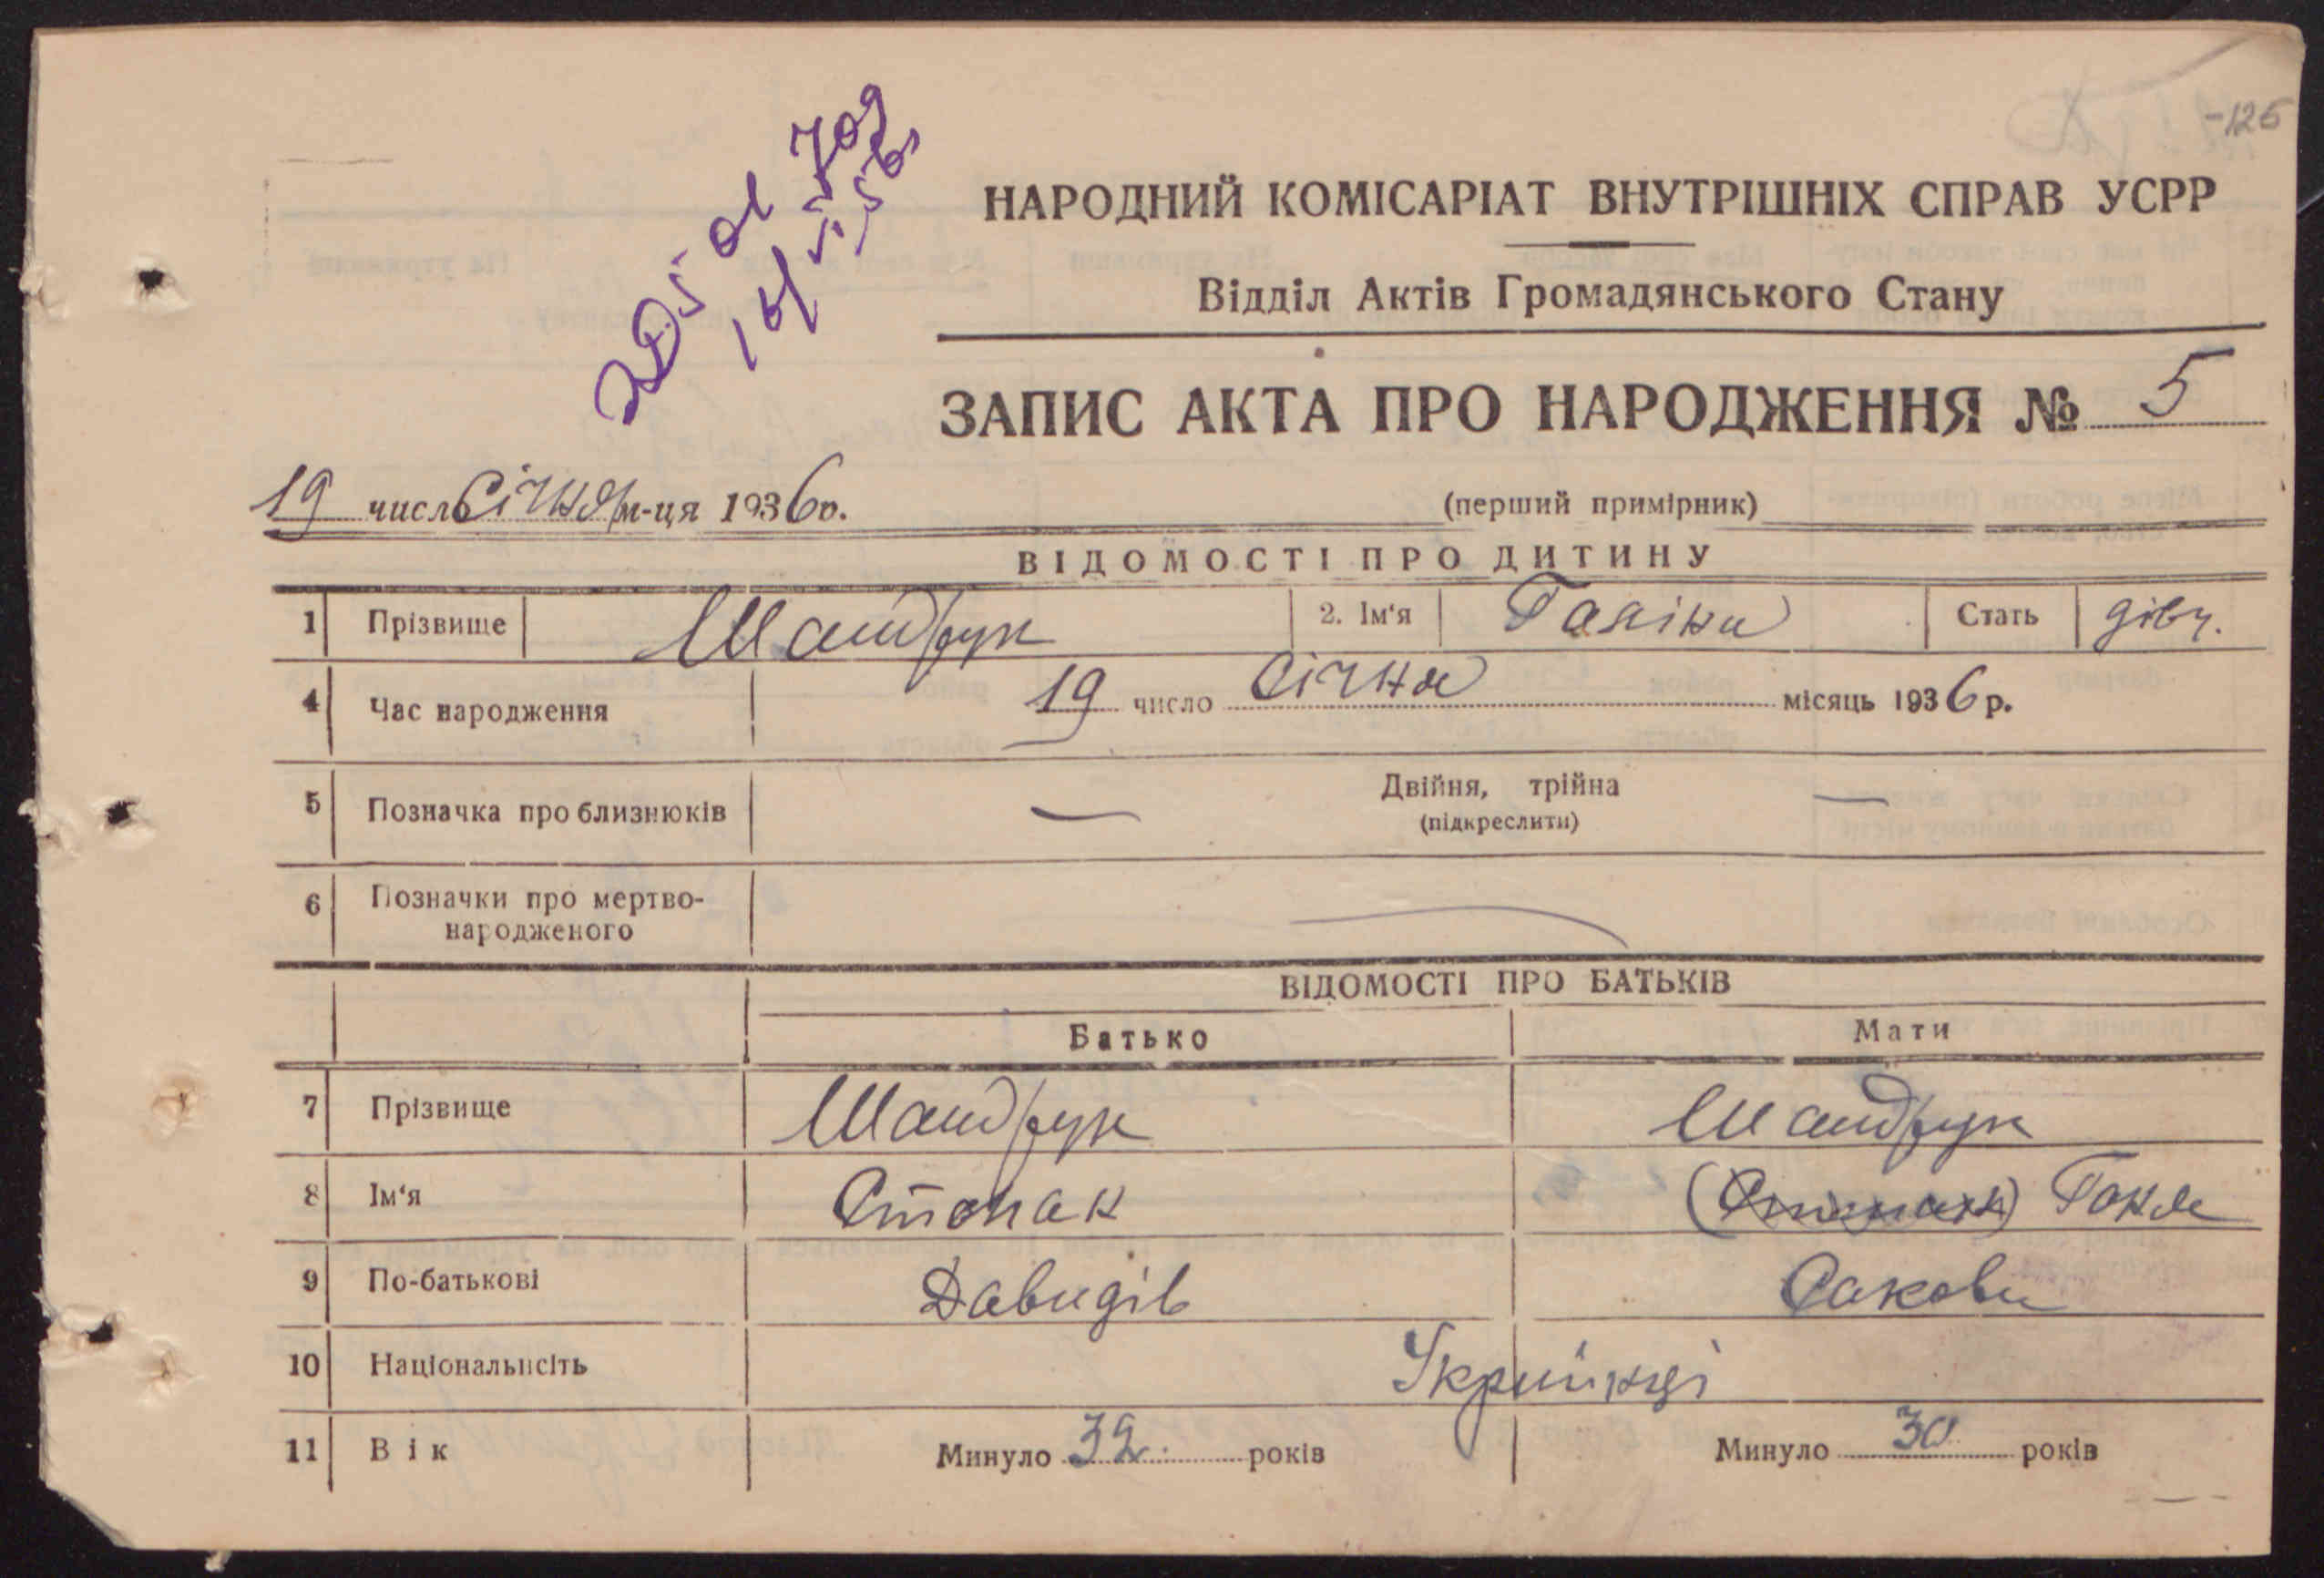 -126
205 01 709
16/VI 56
НАРОДНИЙ КОМІСАРІАТ ВНУТРІШНІХ СПРАВ УСРР
Відділ Актів Громадянського Стану
ЗАПИС АКТА ПРО НАРОДЖЕННЯ № 5
19 числ Січня м-ця 1936 р.
(перший примірник)
ВІДОМОСТІ ПРО ДИТИНУ
1 Прізвище Шандрук 2. Ім'я Галіна Стать дівч.
4 Час народження 19 число Січня місяць 1936 р.
5 Позначка про близнюків — Двійня, трійна —
(підкреслити)
6 Позначки про мертво-
народженого —
ВІДОМОСТІ ПРО БАТЬКІВ
Батько Мати
7 Прізвище Шандрук Шандрук
8 Ім'я Стопак Ганя
9 По-батькові Давидів Сакови
10 Національність Українці
11 Вік Минуло 32 років Минуло 30 років